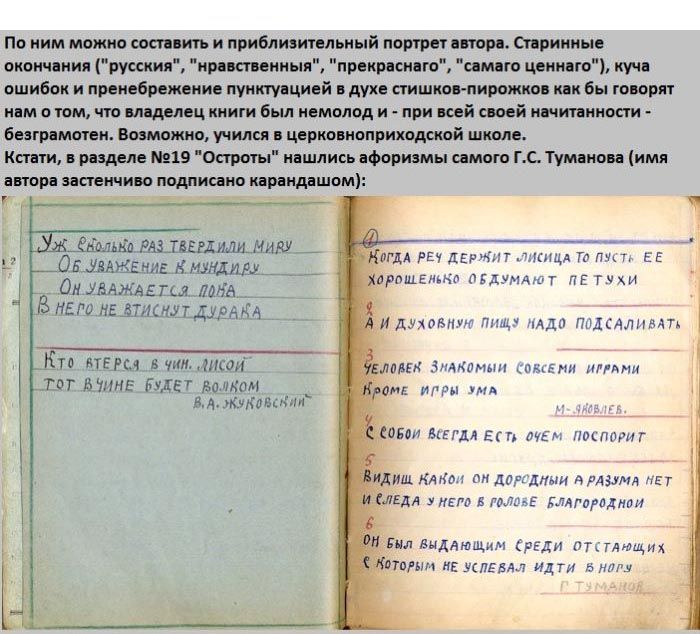 По ним можно составить и приблизительный портрет автора. Старинные
окончания ("русския", "нравственныя", "прекраснаго", "самаго ценнаго"), куча
ошибок и пренебрежение пунктуацией в духе стишков-пирожков как бы говорят
нам о том, что владелец книги был немолод и - при всей своей начитанности -
безграмотен. Возможно, учился в церковноприходской школе.
Кстати, в разделе №19 "Остроты" нашлись афоризмы самого Г.С. Туманова (имя
автора застенчиво подписано карандашом):
УЖ СКОЛЬКО РАЗ ТВЕРДИЛИ МИРУ
ОБ УВАЖЕНИЕ К МУНДИРУ
ОН УВАЖАЕТСЯ ПОКА
В НЕГО НЕ ВТИСНУТ ДУРАКА
КТО ВТЕРСЯ В ЧИН. ЛИСОЙ
ТОТ В ЧИНЕ БУДЕТ ВОЛКОМ
В.А. ЖУКОВСКИЙ
1
КОГДА РЕЧ ДЕРЖИТ ЛИСИЦА ТО ПУСТЬ ЕЕ
ХОРОШЕНЬКО ОБДУМАЮТ ПЕТУХИ
2
А И ДУХОВНУЮ ПИЩУ НАДО ПОДСАЛИВАТЬ
3
ЧЕЛОВЕК ЗНАКОМЫЙ СОВСЕМИ ИГРАМИ
КРОМЕ ИГРЫ УМА
М-ЯКОВЛЕВ.
4
С СОБОЙ ВСЕГДА ЕСТЬ ОЧЕМ ПОСПОРИТ
5
ВИДИШ КАКОЙ ОН ДОРОДНЫЙ А РАЗУМА НЕТ
И СЛЕДА У НЕГО В ГОЛОВЕ БЛАГОРОДНОЙ
6
ОН БЫЛ ВЫДАЮЩИМ СРЕДИ ОТСТАЮЩИХ
С КОТОРЫМ НЕ УСПЕВАЛ ИДТИ В НОГУ
Г ТУМАНОВ